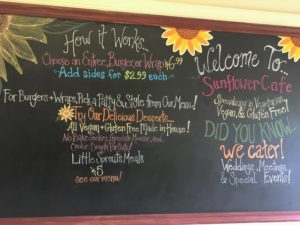 How it Works...
Choose an Entree, Burger, or Wrap $6.99
Add sides for $2.99 each
For Burgers + Wraps, Pick a Patty & Style from Our Menu!
Try Our Delicious Desserts
All Vegan + Gluten Free Made in House!
No Bake Cookies, Chocolate Mousse, and
Cookie Dough Parfait!
Little Sprouts Meals
$5
see our menu!
Welcome To...
Sunflower Cafe
Specializing in Vegetarian,
Vegan, & Gluten Free!
DID YOU KNOW...
we cater!
Weddings, Meetings,
& Special Events!